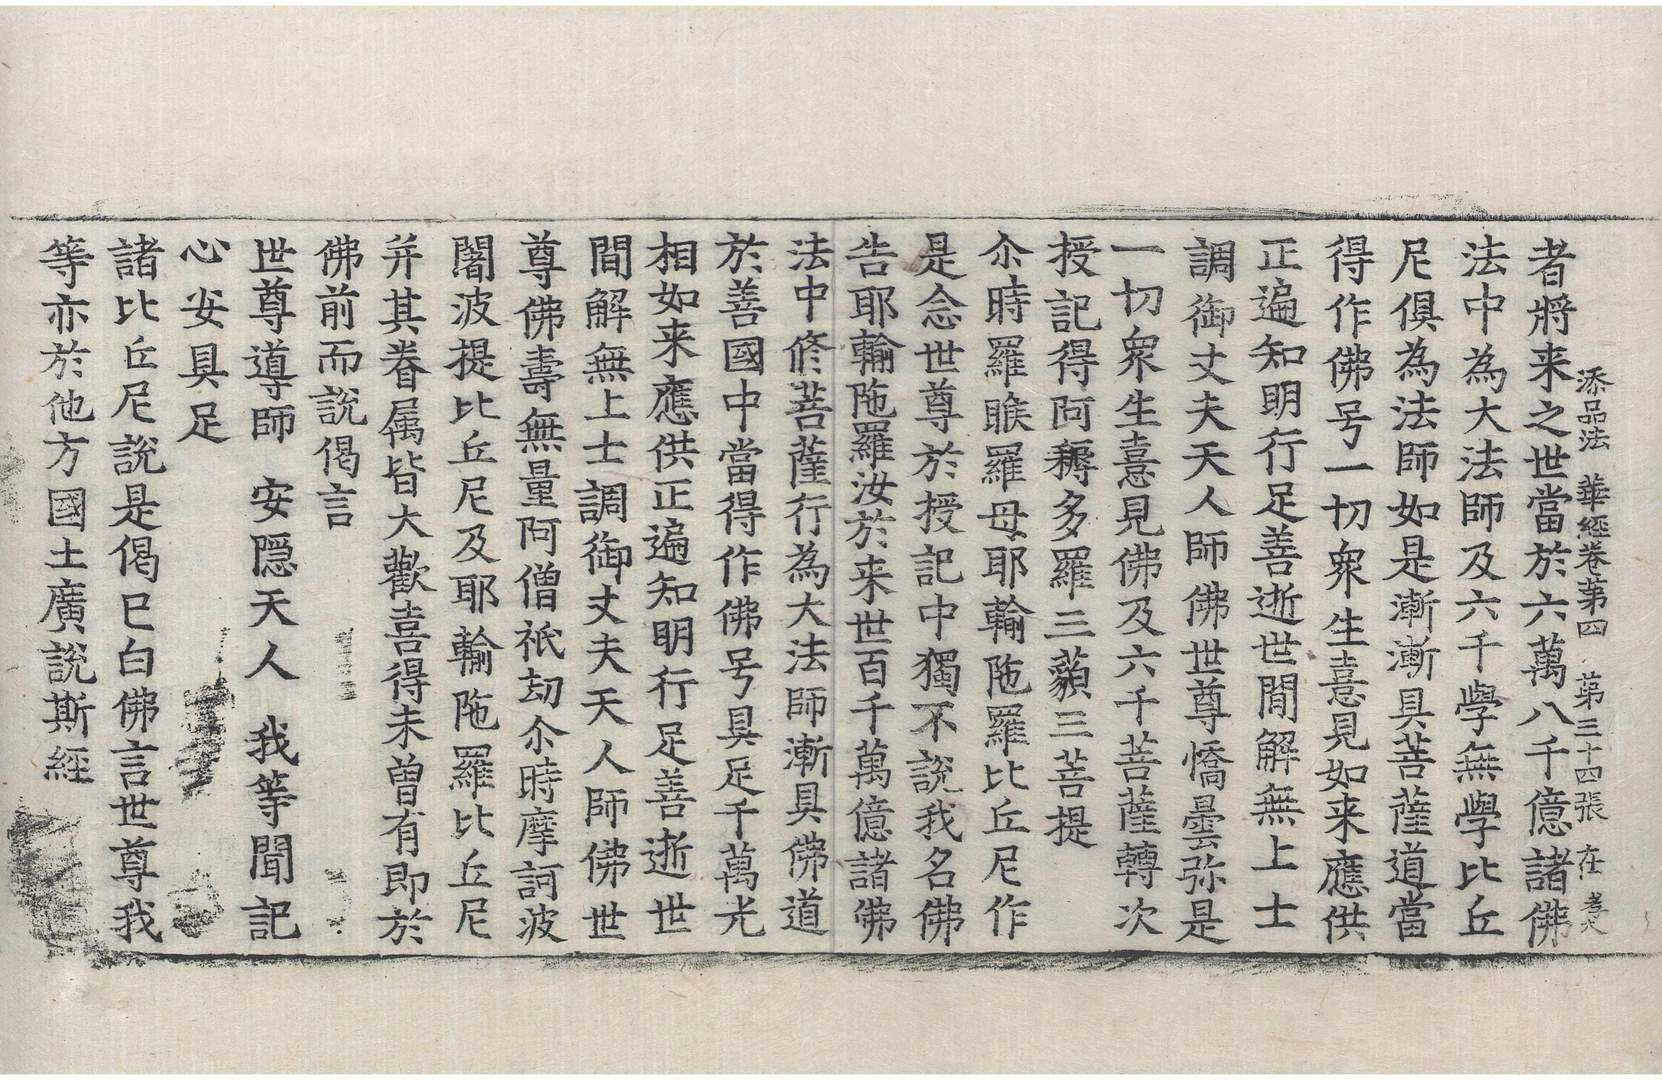 添品法華經卷第四 第三十四張 在
者將来之世當於六萬八千億諸佛
法中為大法師及六千學無學比丘
尼俱為法師如是漸漸具菩薩道當
得作佛号一切衆生憙見如来應供
正遍知明行足善逝世間解無上士
調御丈夫天人師佛世尊憍曇弥是
一切衆生憙見佛及六千菩薩轉次
授記得阿耨多羅三藐三菩提
尒時羅睺羅母耶輸陁羅比丘尼作
是念世尊於授記中獨不說我名佛
告耶輸陁羅汝於来世百千萬億諸佛
法中修菩薩行為大法師漸具佛道
於善國中當得作佛号具足千萬光
相如来應供正遍知明行足善逝世
間解無上士調御丈夫天人師佛世
尊佛壽無量阿僧祇劫尒時摩訶波
闍波提比丘尼及耶輸陁羅比丘尼
并其眷属皆大歡喜得未曾有即於
佛前而說偈言
世尊導師 安隱天人 我等聞記
心安具足
諸比丘尼說是偈已白佛言世尊我
等亦於他方國土廣說斯經